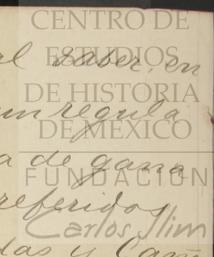 CENTRO DE
al saber, en
ESTUDIOS
DE HISTORIA
un regula
DE MÉXICO
a de gana
FUNDACIÓN
referidos
Carlos Slim
das y Cam